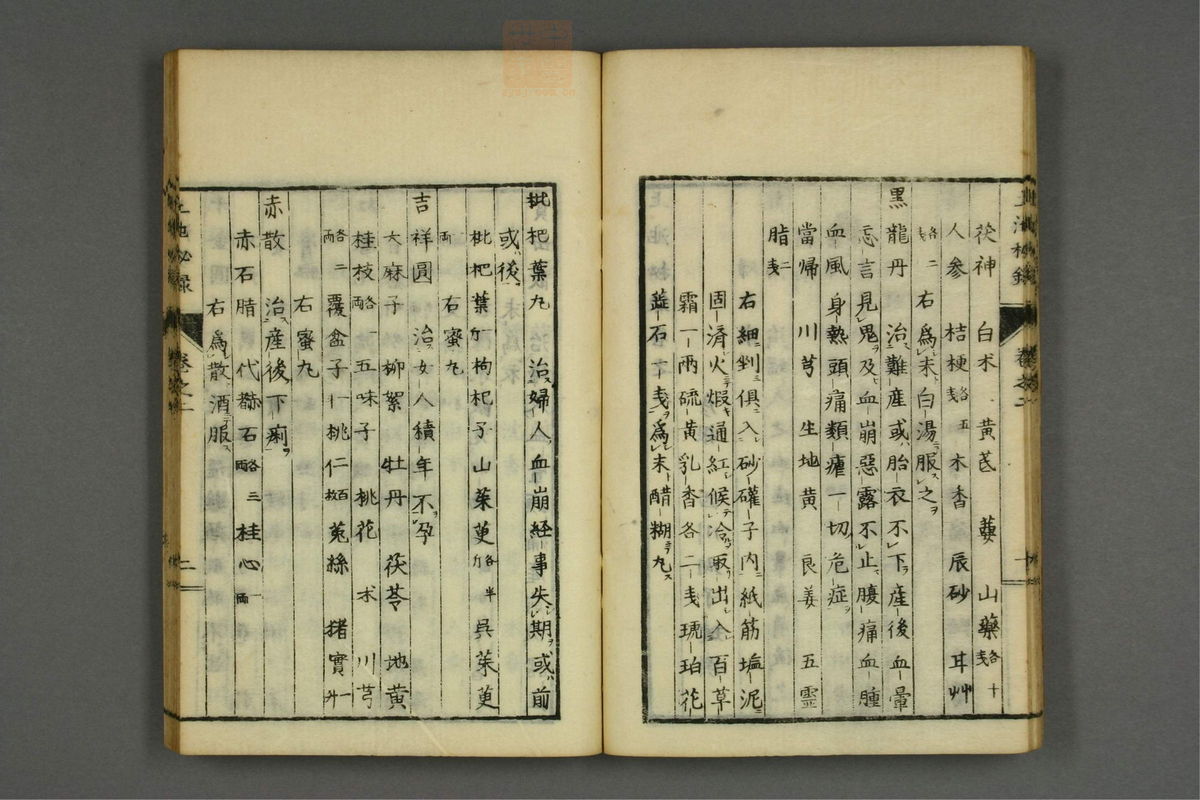 茯神 白朮 黄茋 蔢 山藥各十戔
人参 桔梗各五戔 木香 辰砂 耳艸
各二戔 右爲末白湯服之
黒龍丹 治難産或胎衣不下産後血暈
忘言見鬼及血崩惡露不止腹痛血腫
血風身熱頭痛類瘧一切危症
當帰 川芎 生地黄 良姜 五霊
脂二戔
右細剉俱入砂礶子内紙筋塩泥
固済火煆通紅候冷取出入百草
霜一兩硫黄乳香各二戔琥珀花
蕋石一戔爲末醋糊丸
枇杷葉丸 治婦人血崩経事失期或前
或後
枇杷葉斤 枸杞子 山茱萸各半斤 呉茱萸
一両 右蜜丸
吉祥圓 治女人積年不孕
大麻子 柳絮 牡丹 茯苓 地黄
桂枝各一両 五味子 桃花 朮 川芎
各二両 覆盆子一升 桃仁百枚 菟絲 猪實一升
右蜜丸
赤散 治産後下痢
赤石脂 代赭石各三両 桂心一両
右爲散酒服
卷之二